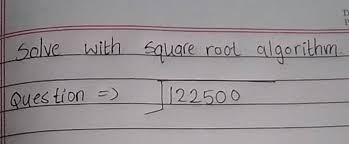 Solve with square root algorithm.
Question => √122500